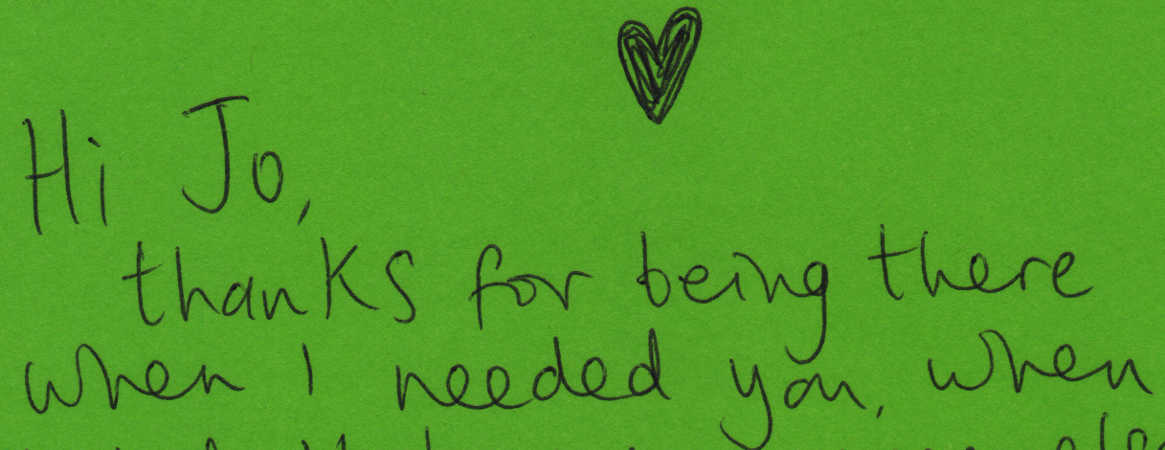 Hi Jo,
thanks for being there
when I needed you, when